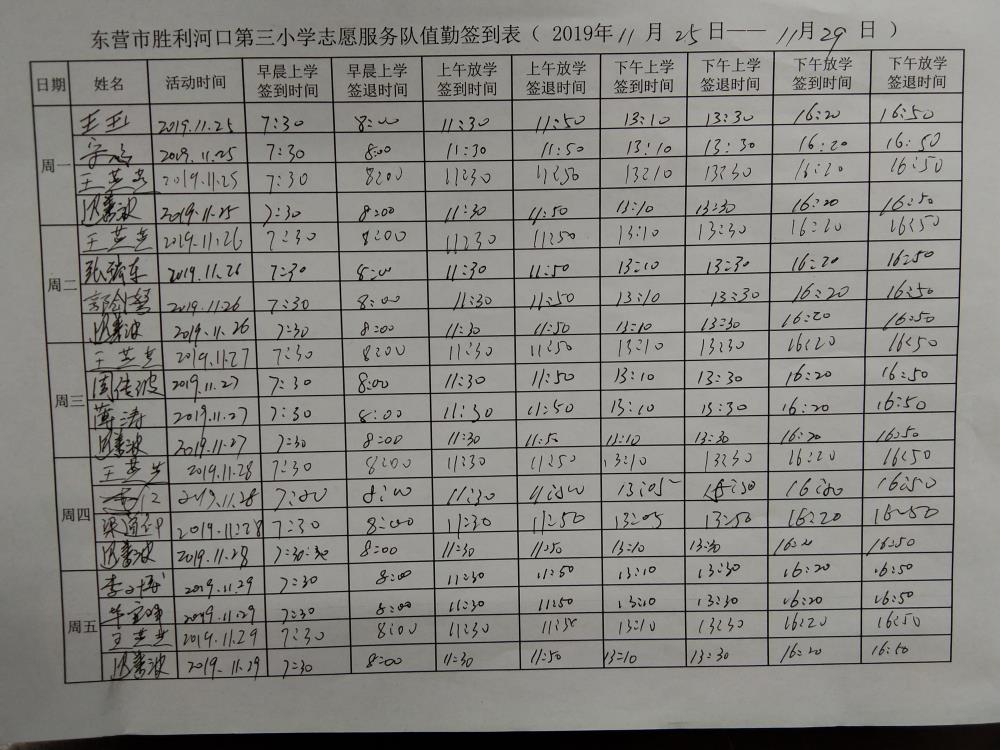 东营市胜利河口第三小学志愿服务队值勤签到表（ 2019年11月25日——11月29日 ）
日期 姓名 活动时间 早晨上学签到时间 早晨上学签退时间 上午放学签到时间 上午放学签退时间 下午上学签到时间 下午上学签退时间 下午放学签到时间 下午放学签退时间
周一 王玉 2019.11.25 7:30 8:00 11:30 11:50 13:10 13:30 16:20 16:50
2019.11.25 7:30 8:00 11:30 11:50 13:10 13:30 16:20 16:50
王 2019.11.25 7:30 8:00 11:30 11:50 13:10 13:30 16:20 16:50
2019.11.25 7:30 8:00 11:30 11:50 13:10 13:30 16:20 16:50
周二 王 2019.11.26 7:30 8:00 11:30 11:50 13:10 13:30 16:20 16:50
张 2019.11.26 7:30 8:00 11:30 11:50 13:10 13:30 16:20 16:50
2019.11.26 7:30 8:00 11:30 11:50 13:10 13:30 16:20 16:50
2019.11.26 7:30 8:00 11:30 11:50 13:10 13:30 16:20 16:50
周三 王 2019.11.27 7:30 8:00 11:30 11:50 13:10 13:30 16:20 16:50
周传波 2019.11.27 7:30 8:00 11:30 11:50 13:10 13:30 16:20 16:50
薄涛 2019.11.27 7:30 8:00 11:30 11:50 13:10 13:30 16:20 16:50
2019.11.27 7:30 8:00 11:30 11:50 11:10 13:30 16:20 16:50
周四 王 2019.11.28 7:30 8:00 11:30 11:50 13:10 13:30 16:20 16:50
2019.11.28 8:00 11:30 13:05 16:50
梁 2019.11.28 7:30 8:00 11:30 11:50 13:05 13:50 16:20 16:50
2019.11.28 8:00 11:30 11:50 13:10 13:30 16:50
周五 李 2019.11.29 7:30 8:00 11:30 11:50 13:10 13:30 16:20 16:50
2019.11.29 7:30 8:00 11:30 11:50 13:10 13:30 16:20 16:50
王 2019.11.29 7:30 8:00 11:30 11:50 13:10 13:30 16:20 16:50
2019.11.29 7:30 8:00 11:30 11:50 13:10 13:30 16:20 16:50